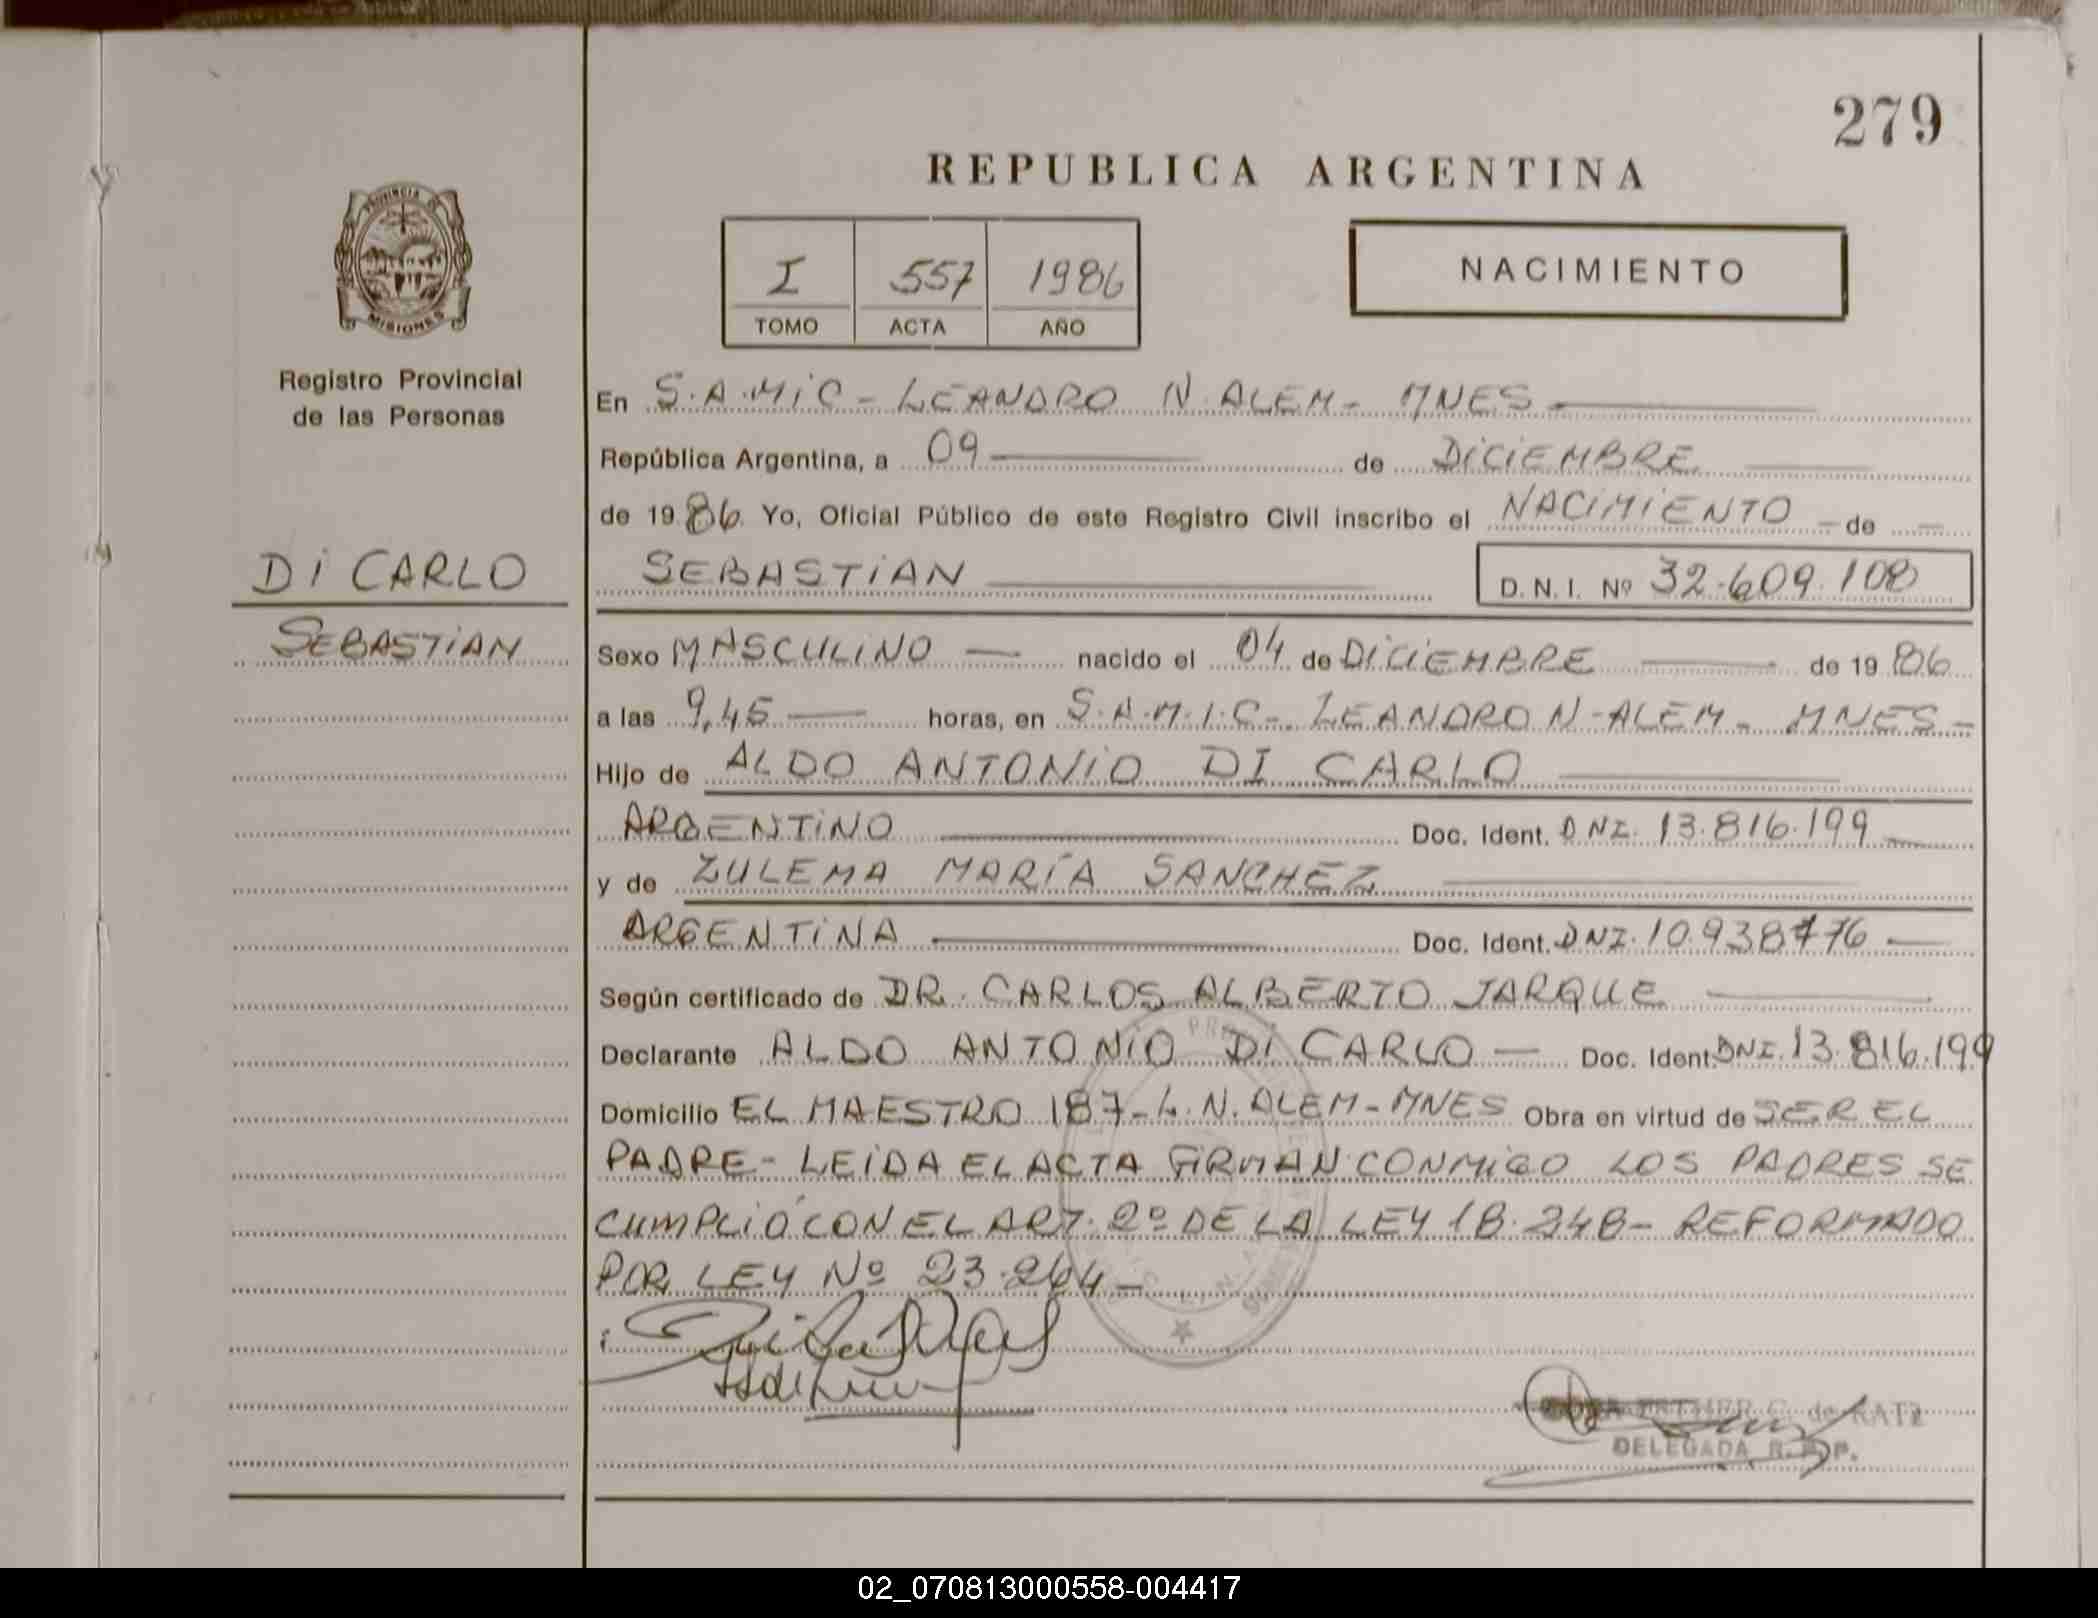 279
REPUBLICA ARGENTINA
PROVINCIA DE
MISIONES
Registro Provincial
de las Personas
I 557 1986
TOMO ACTA AÑO
NACIMIENTO
En S.A.MiC - LEANDRO N. ALEM - MNES
República Argentina, a 09 de DiCiEMBRE
de 1986. Yo, Oficial Público de este Registro Civil inscribo el NACiMiENTO de
Di CARLO
SEBASTiAN D.N.I. Nº 32.609.108
SEBASTiAN
Sexo MASCULiNO nacido el 04 de DiCiEMBRE de 1986
a las 9,45 horas, en S.A.M.I.C - LEANDRO N. ALEM - MNES -
Hijo de ALDO ANTONiO DI CARLO
ARGENTiNO Doc. Ident. DNI. 13.816.199
y de ZULEMA MARÍA SANCHEZ
ARGENTiNA Doc. Ident. DNI. 10.938.776
Según certificado de DR. CARLOS ALBERTO JARQUE
Declarante ALDO ANTONiO Di CARLO Doc. Ident. DNI. 13.816.199
Domicilio EL MAESTRO 187 - L.N. ALEM - MNES Obra en virtud de SER EL
PADRE - LEiDA EL ACTA FiRMAN CONMiGO LOS PADRES SE
CUMPLiÓ CON EL ART. 2º DE LA LEY 18.248 - REFORMADO
POR LEY Nº 23.264 -
ESTHER C. de KATZ
DELEGADA R.P.P.
02_070813000558-004417